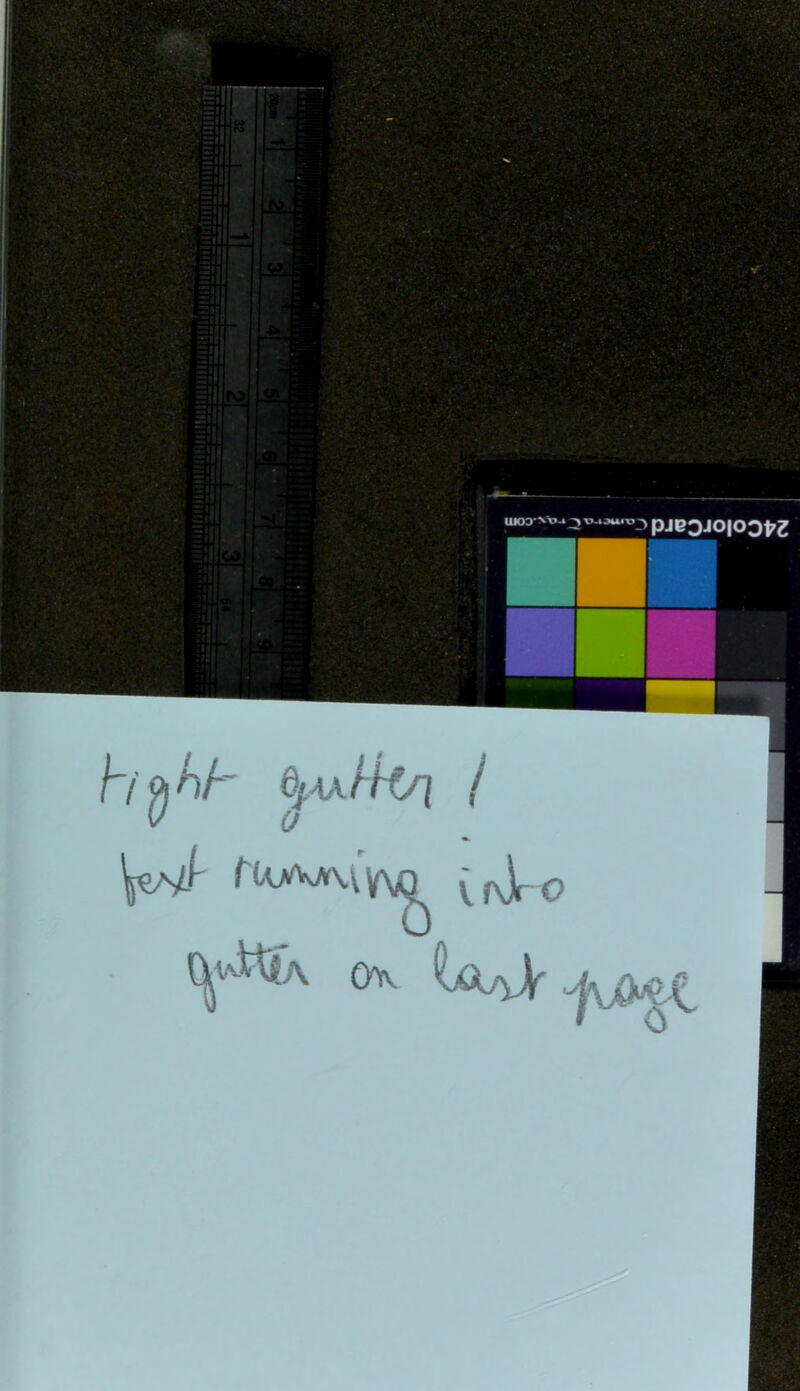 20cm
32
1
1
2
3
4
2
5
6
7
3
8
64
9
24ColorCard CameraTrax.com
tight gutter /
text running into
gutter on last page